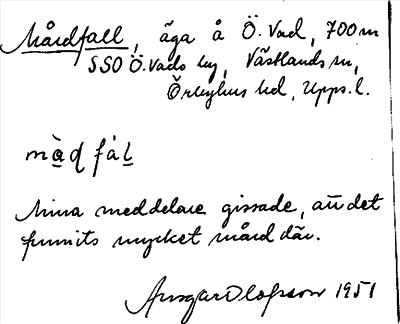 Mårdfall, äga å Ö. Vad, 700 m
SSO Ö. Vads by, Västlands sn,
Örbyhus hd, Upps. l.
mà̱ɖ fàḻ
Mina meddelare gissade, att det
funnits mycket mård där.
Ansgar Olofsson 1951